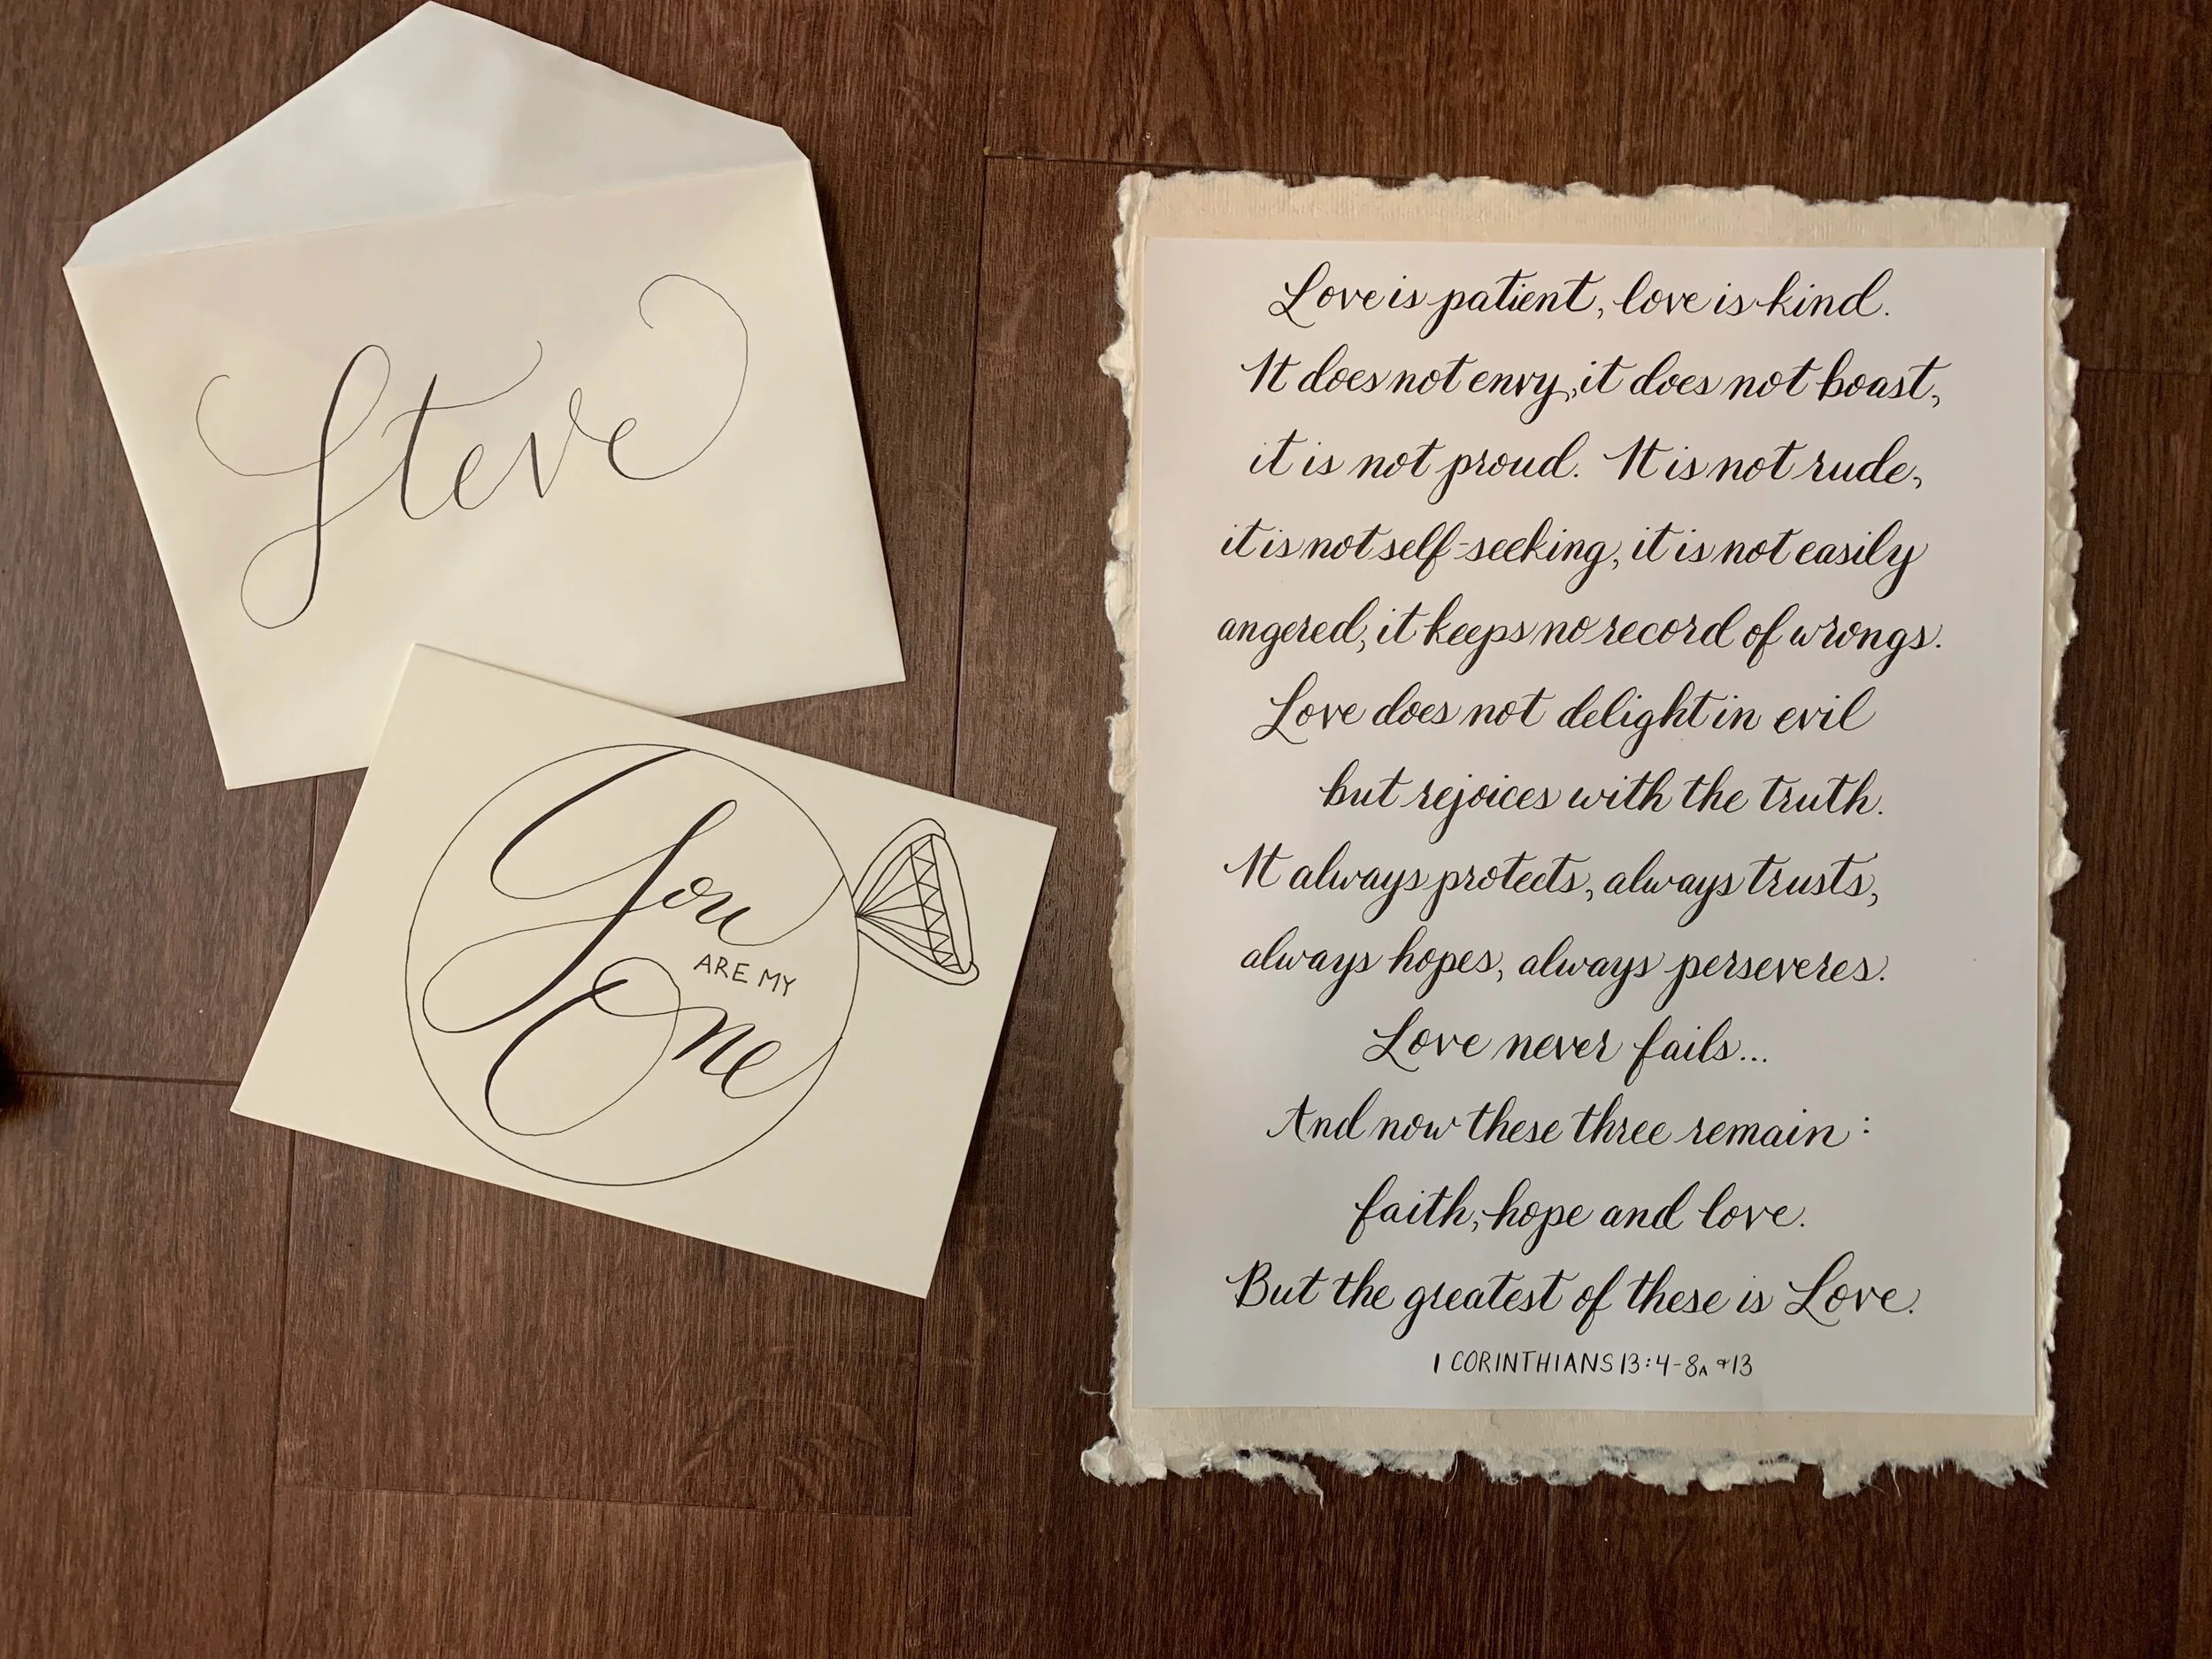 Steve
You
ARE MY
One
Love is patient, love is kind.
It does not envy, it does not boast,
it is not proud. It is not rude,
it is not self-seeking, it is not easily
angered, it keeps no record of wrongs.
Love does not delight in evil
but rejoices with the truth.
It always protects, always trusts,
always hopes, always perseveres.
Love never fails...
And now these three remain:
faith, hope and love.
But the greatest of these is Love.
1 CORINTHIANS 13:4-8A & 13